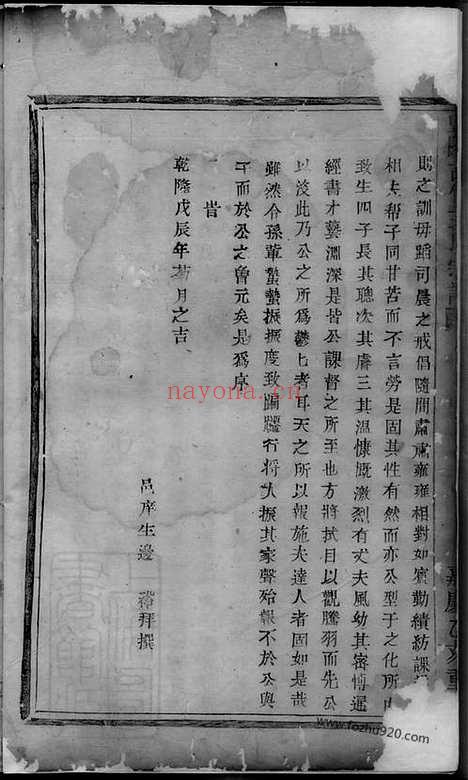 則之訓毋蹈司晨之戒倡隨間肅肅雍雍相對如賓勤績紡課
相夫帮子同甘苦而不言勞是固其性有然而亦公型于之化所
致生四子長其聰次其睿三其溫慷慨激烈有丈夫風幼其密博通
經書才藝淵深是皆公課督之所至也方將拭目以觀騰羽而先公
以沒此乃公之所爲鬱匕者耳天之所以報施夫達人者固如是哉
雖然令孫輩蟄蟄振振度致蹁躚行將大振其家聲殆報不於公與
子而於公之曾元矣是爲序
旹
乾隆戊辰年 月之吉
邑庠生邊 拜撰
嘉慶乙亥重
nayona.cn
www.fozhu920.com